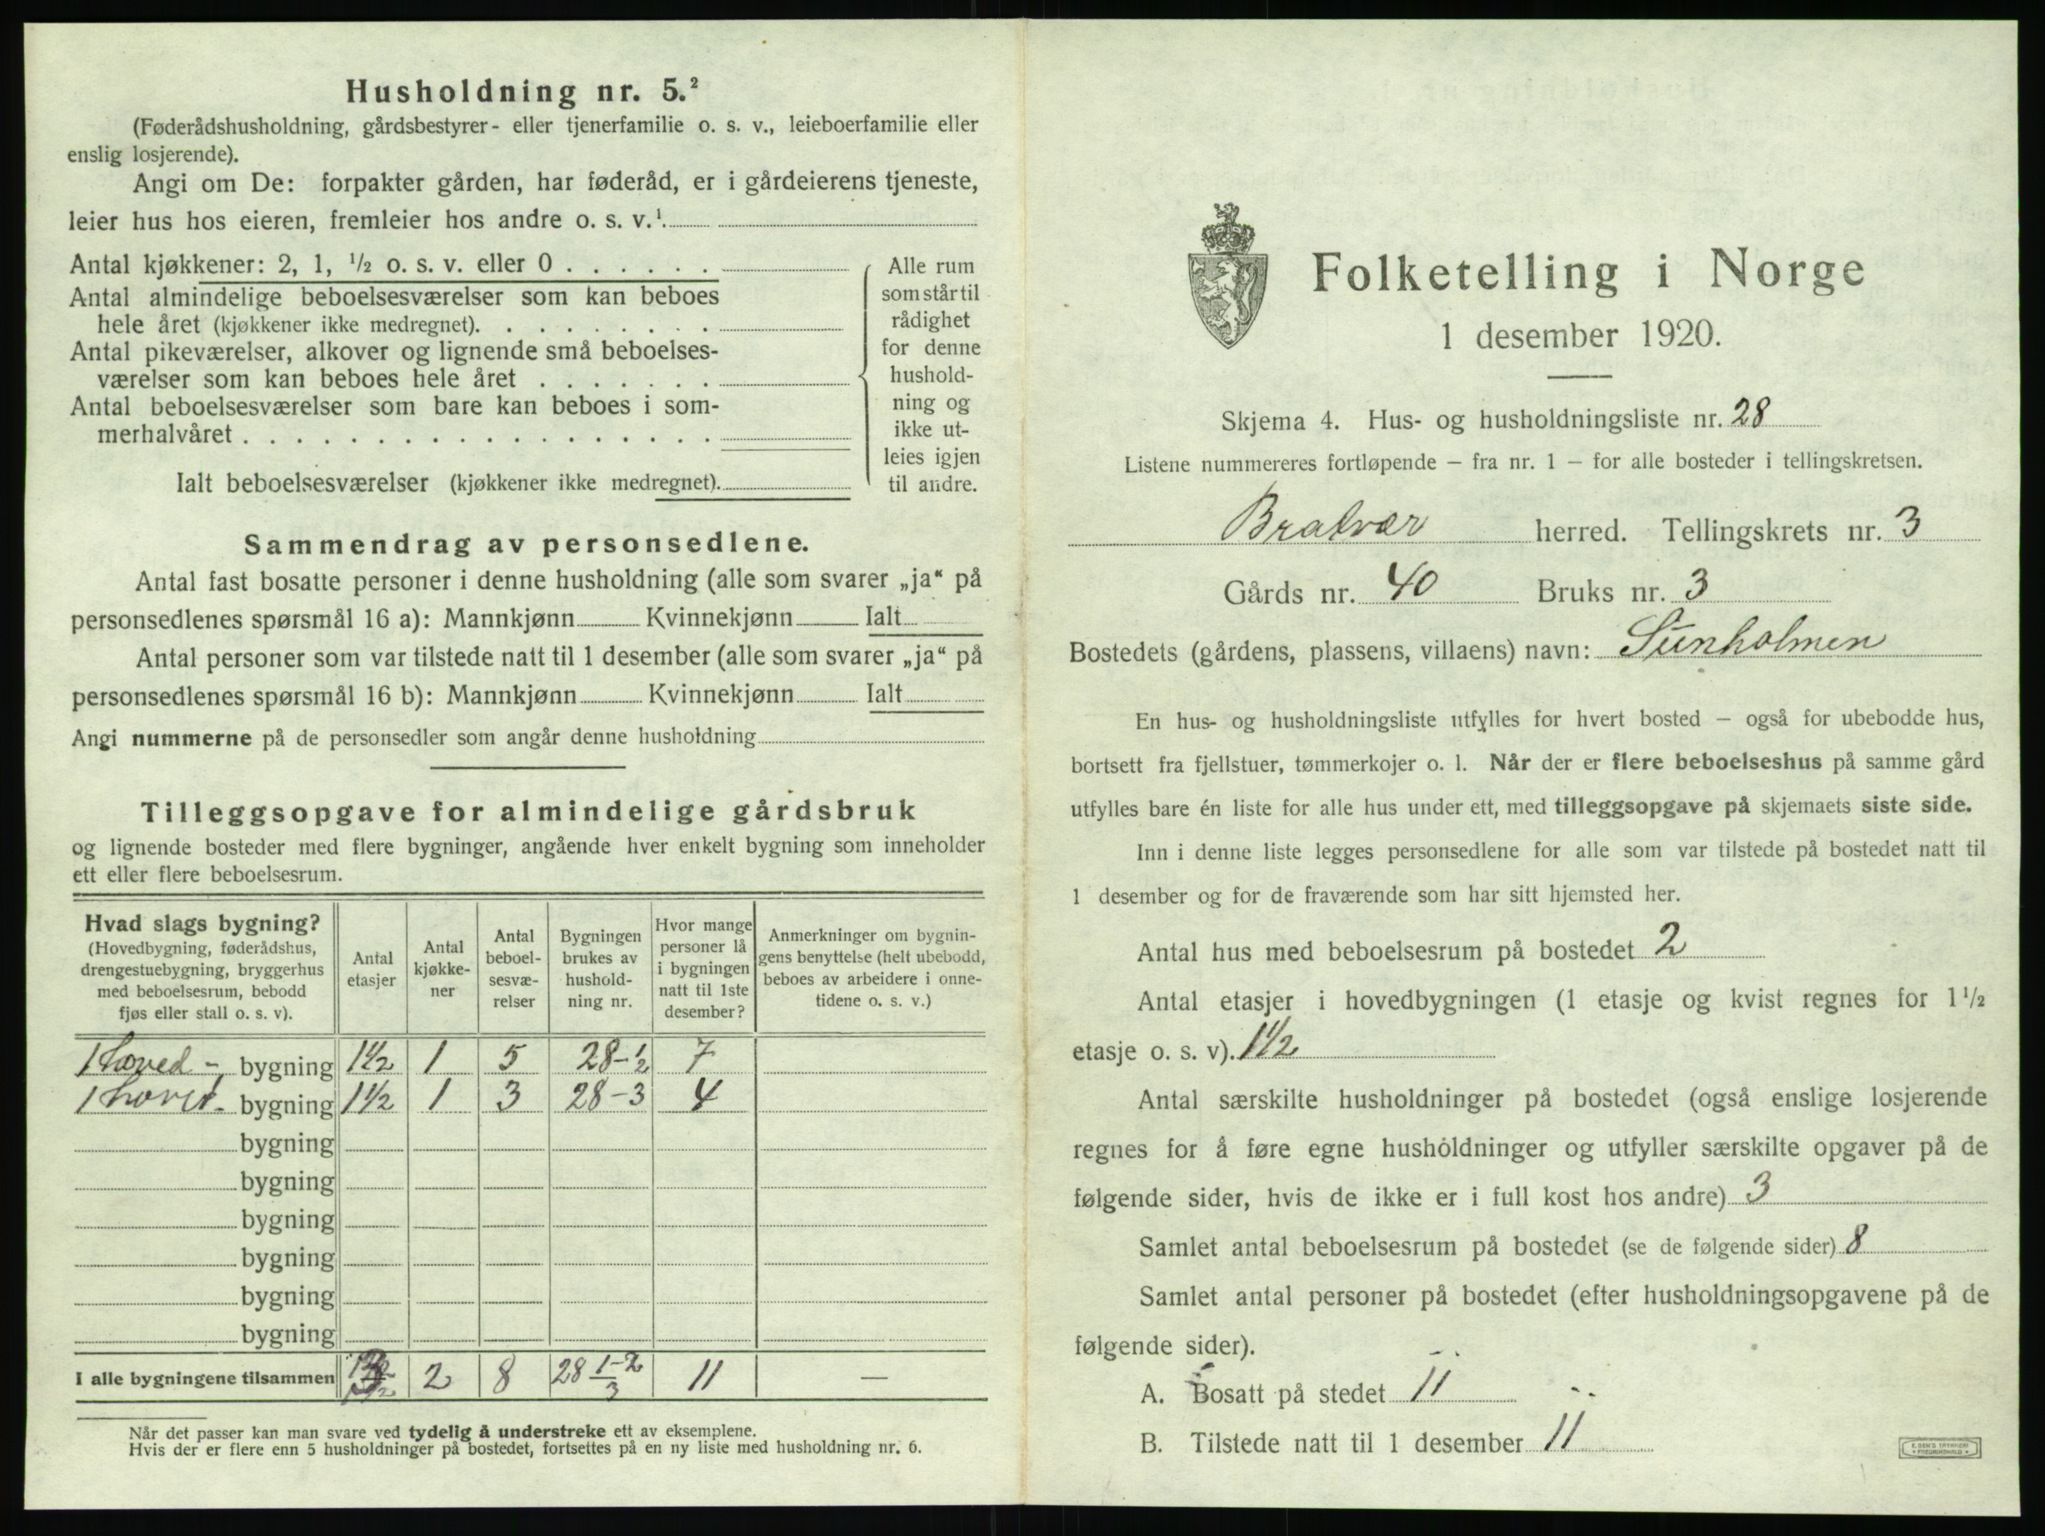 Husholdning nr. 5.²
(Føderådshusholdning, gårdsbestyrer- eller tjenerfamilie o. s. v., leieboerfamilie eller
enslig losjerende).
Angi om De: forpakter gården, har føderåd, er i gårdeierens tjeneste,
leier hus hos eieren, fremleier hos andre o. s. v.¹
Antal kjøkkener: 2, 1, ½ o. s. v. eller 0
Antal almindelige beboelsesværelser som kan beboes
hele året (kjøkkener ikke medregnet).
Antal pikeværelser, alkover og lignende små beboelses-
værelser som kan beboes hele året
Antal beboelsesværelser som bare kan beboes i som-
merhalvåret
Ialt beboelsesværelser (kjøkkener ikke medregnet).
Alle rum
som står til
rådighet
for denne
hushold-
ning og
ikke ut-
leies igjen
til andre.
Sammendrag av personsedlene.
Antal fast bosatte personer i denne husholdning (alle som svarer „ja“ på
personsedlenes spørsmål 16 a): Mannkjønn Kvinnekjønn Ialt
Antal personer som var tilstede natt til 1 desember (alle som svarer „ja“ på
personsedlenes spørsmål 16 b): Mannkjønn Kvinnekjønn Ialt
Angi nummerne på de personsedler som angår denne husholdning
Tilleggsopgave for almindelige gårdsbruk
og lignende bosteder med flere bygninger, angående hver enkelt bygning som inneholder
ett eller flere beboelsesrum.
Hvad slags bygning?
(Hovedbygning, føderådshus,
drengestuebygning, bryggerhus
med beboelsesrum, bebodd
fjøs eller stall o. s. v).
Antal
etasjer
Antal
kjøkke-
ner
Antal
beboel-
sesvæ-
relser
Bygningen
brukes av
hushold-
ning nr.
Hvor mange
personer lå
i bygningen
natt til 1ste
desember?
Anmerkninger om bygnin-
gens benyttelse (helt ubebodd,
beboes av arbeidere i onne-
tidene o. s. v.)
1 hoved- bygning 1½ 1 5 28-½ 7
1 hoved- bygning 1½ 1 3 28-3 4
bygning
bygning
bygning
bygning
bygning
bygning
I alle bygningene tilsammen 3 2 8 28 1-2/3 11 —
Når det passer kan man svare ved tydelig å understreke ett av eksemplene.
Hvis der er flere enn 5 husholdninger på bostedet, fortsettes på en ny liste med husholdning nr. 6.
Folketelling i Norge
1 desember 1920.
Skjema 4. Hus- og husholdningsliste nr. 28
Listene nummereres fortløpende — fra nr. 1 — for alle bosteder i tellingskretsen.
Bratvær herred. Tellingskrets nr. 3
Gårds nr. 40 Bruks nr. 3
Bostedets (gårdens, plassens, villaens) navn: Sunholmen
En hus- og husholdningsliste utfylles for hvert bosted — også for ubebodde hus,
bortsett fra fjellstuer, tømmerkojer o. l. Når der er flere beboelseshus på samme gård
utfylles bare én liste for alle hus under ett, med tilleggsopgave på skjemaets siste side.
Inn i denne liste legges personsedlene for alle som var tilstede på bostedet natt til
1 desember og for de fraværende som har sitt hjemsted her.
Antal hus med beboelsesrum på bostedet 2
Antal etasjer i hovedbygningen (1 etasje og kvist regnes for 1½
etasje o. s. v). 1½
Antal særskilte husholdninger på bostedet (også enslige losjerende
regnes for å føre egne husholdninger og utfyller særskilte opgaver på de
følgende sider, hvis de ikke er i full kost hos andre) 3
Samlet antal beboelsesrum på bostedet (se de følgende sider) 8
Samlet antal personer på bostedet (efter husholdningsopgavene på de
følgende sider).
A. Bosatt på stedet 11
B. Tilstede natt til 1 desember 11